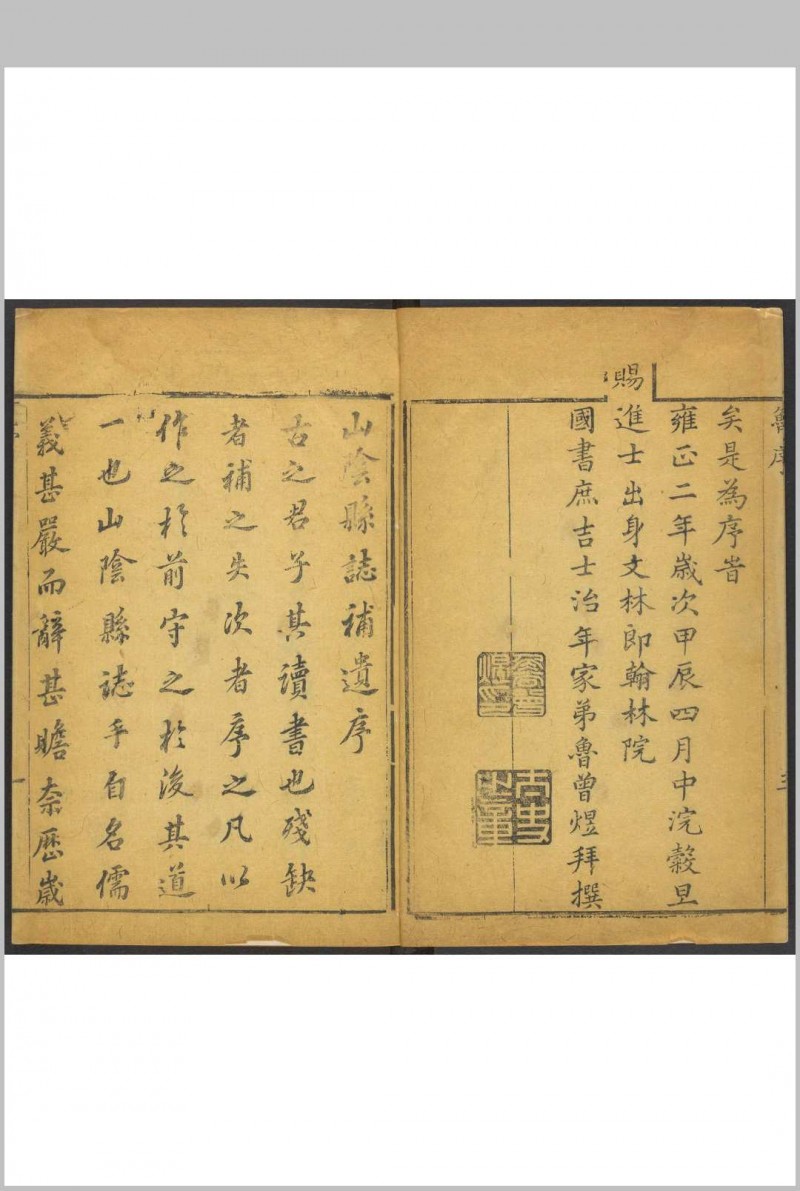 魯序
矣是為序旹
雍正二年歲次甲辰四月中浣穀旦
賜進士出身文林郎翰林院
國書庶吉士治年家弟魯曾煜拜撰
三
山陰縣誌補遺序
古之君子其讀書也殘缺
者補之失次者序之凡以
作之於前守之於後其道
一也山陰縣誌手自名儒
義甚嚴而辭甚贍奈歷歲
一